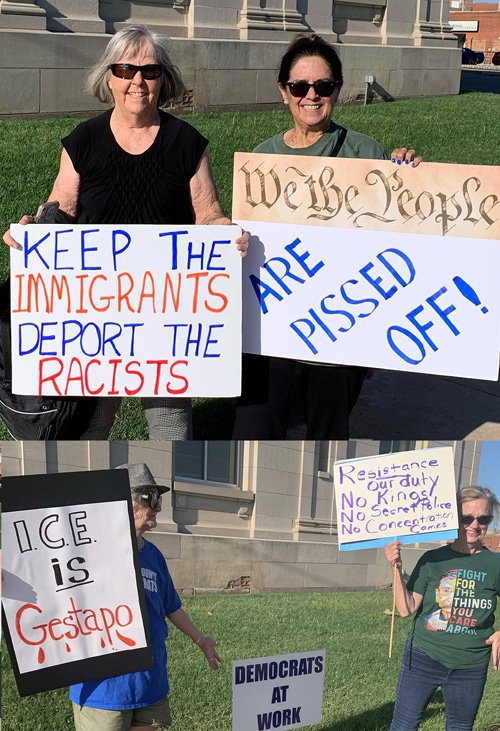 KEEP THE
IMMIGRANTS
DEPORT THE
RACISTS
We the People
ARE
PISSED
OFF!
I.C.E.
is
Gestapo
DEMOCRATS
AT
WORK
Resistance
our duty
No Kings!
No Secret Police
No Concentration
Camps
FIGHT
FOR THE
THINGS
YOU
CARE
ABOUT